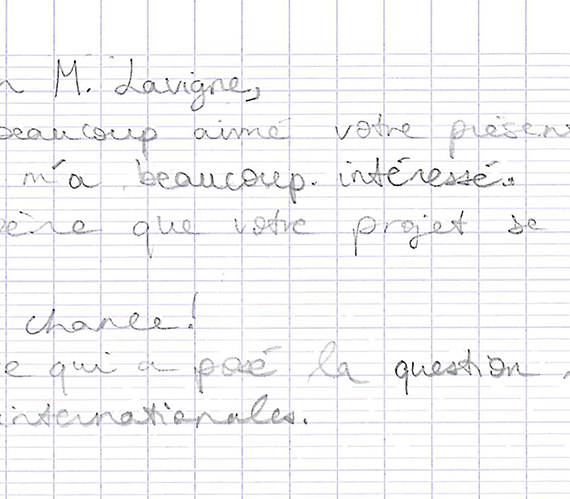 n M. Lavigne,
beaucoup aimé votre présen
m'a beaucoup intéressé.
ère que votre projet se
chance!
e qui a posé la question
internationales.